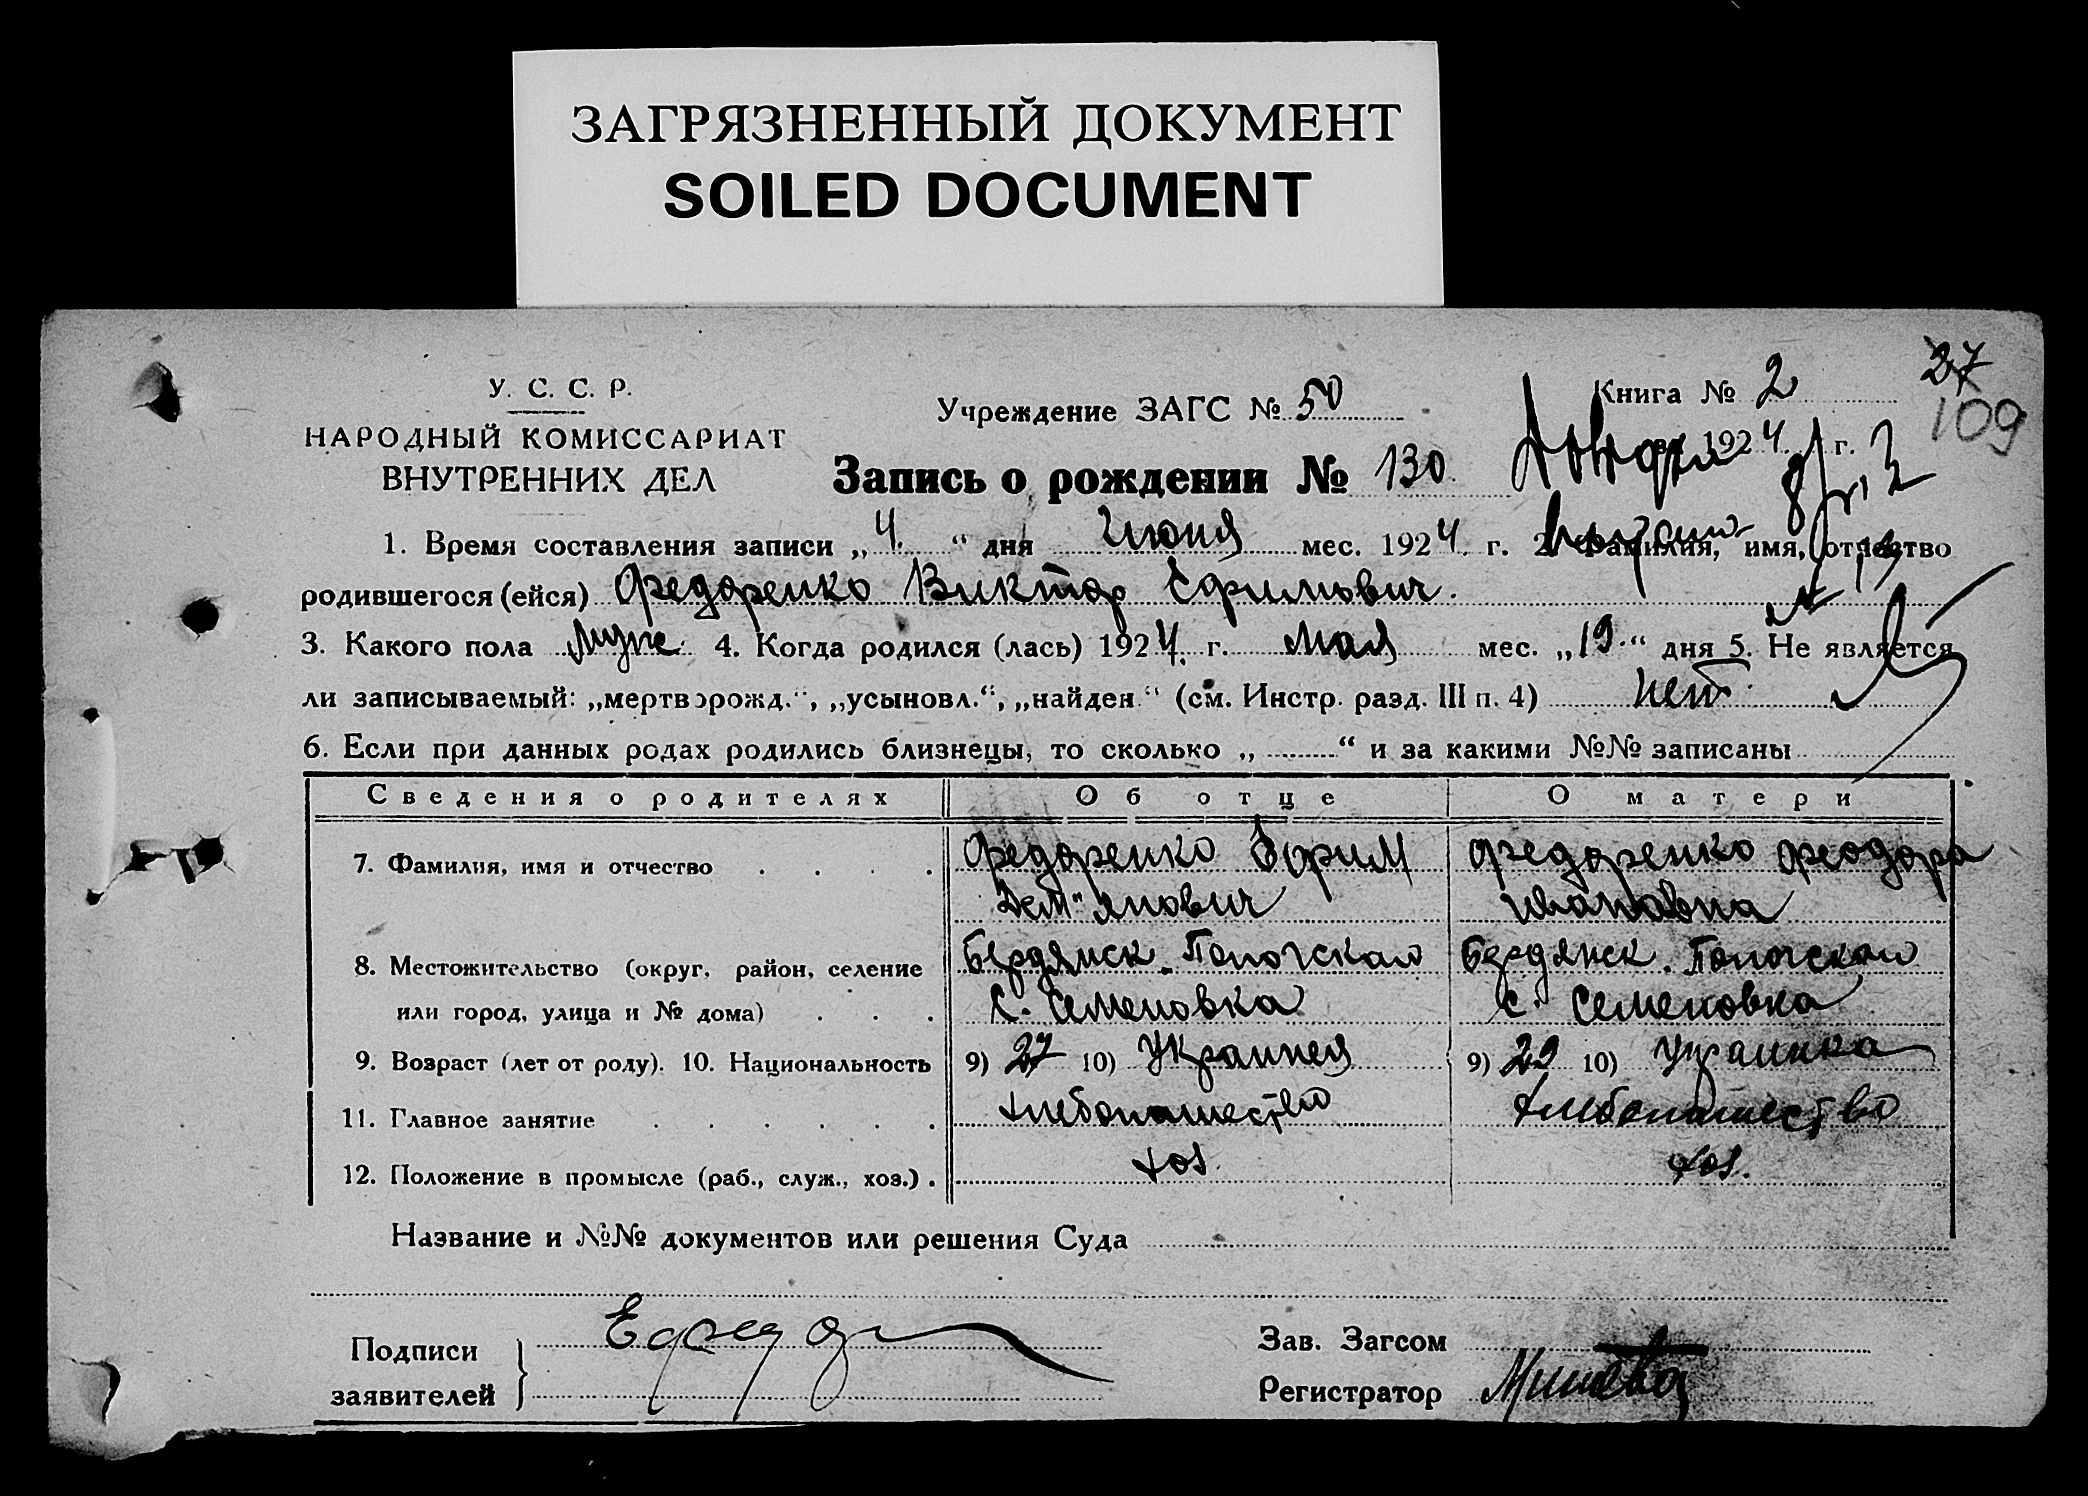 ЗАГРЯЗНЕННЫЙ ДОКУМЕНТ
SOILED DOCUMENT
У. С. С. Р.
НАРОДНЫЙ КОМИССАРИАТ
ВНУТРЕННИХ ДЕЛ
Учреждение ЗАГС № 50
Книга № 2
27
109
1924 г.
Запись о рождении № 130
1. Время составления записи „4.“ дня Июня мес. 1924 г. 2. Фамилия, имя, отчество
родившегося (ейся) Федоренко Виктор Ефимович.
3. Какого пола муж. 4. Когда родился (лась) 1924. г. мая мес. „19.“ дня 5. Не является
ли записываемый: „мертворожд.“, „усыновл.“, „найден.“ (см. Инстр. разд. III п. 4) нет.
6. Если при данных родах родились близнецы, то сколько „ “ и за какими №№ записаны
Сведения о родителях Об отце О матери
7. Фамилия, имя и отчество Федоренко Ефим Федоренко Феодора
Дем"янович Ивановна
8. Местожительство (округ, район, селение Бердянск. Пологском Бердянск. Пологском
или город, улица и № дома) с. Семеновка с. Семеновка
9. Возраст (лет от роду). 10. Национальность 9) 27 10) Украинец 9) 29 10) Украинка
11. Главное занятие хлебопашество хлебопашество
12. Положение в промысле (раб., служ., хоз.) хоз. хоз.
Название и №№ документов или решения Суда
Подписи
заявителей
Зав. Загсом
Регистратор